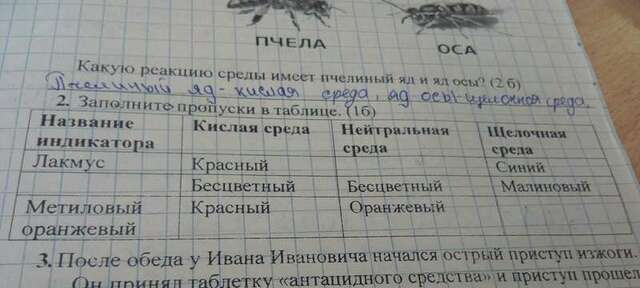 ПЧЕЛА ОСА
Какую реакцию среды имеет пчелиный яд и яд осы? (2 б)
Пчелиный яд - кислая среда, яд осы - щелочная среда.
2. Заполните пропуски в таблице. (1б)
Название индикатора Кислая среда Нейтральная среда Щелочная среда
Лакмус Красный Синий
Бесцветный Бесцветный Малиновый
Метиловый оранжевый Красный Оранжевый
3. После обеда у Ивана Ивановича начался острый приступ изжоги.
Он принял таблетку «антацидного средства» и приступ прошел